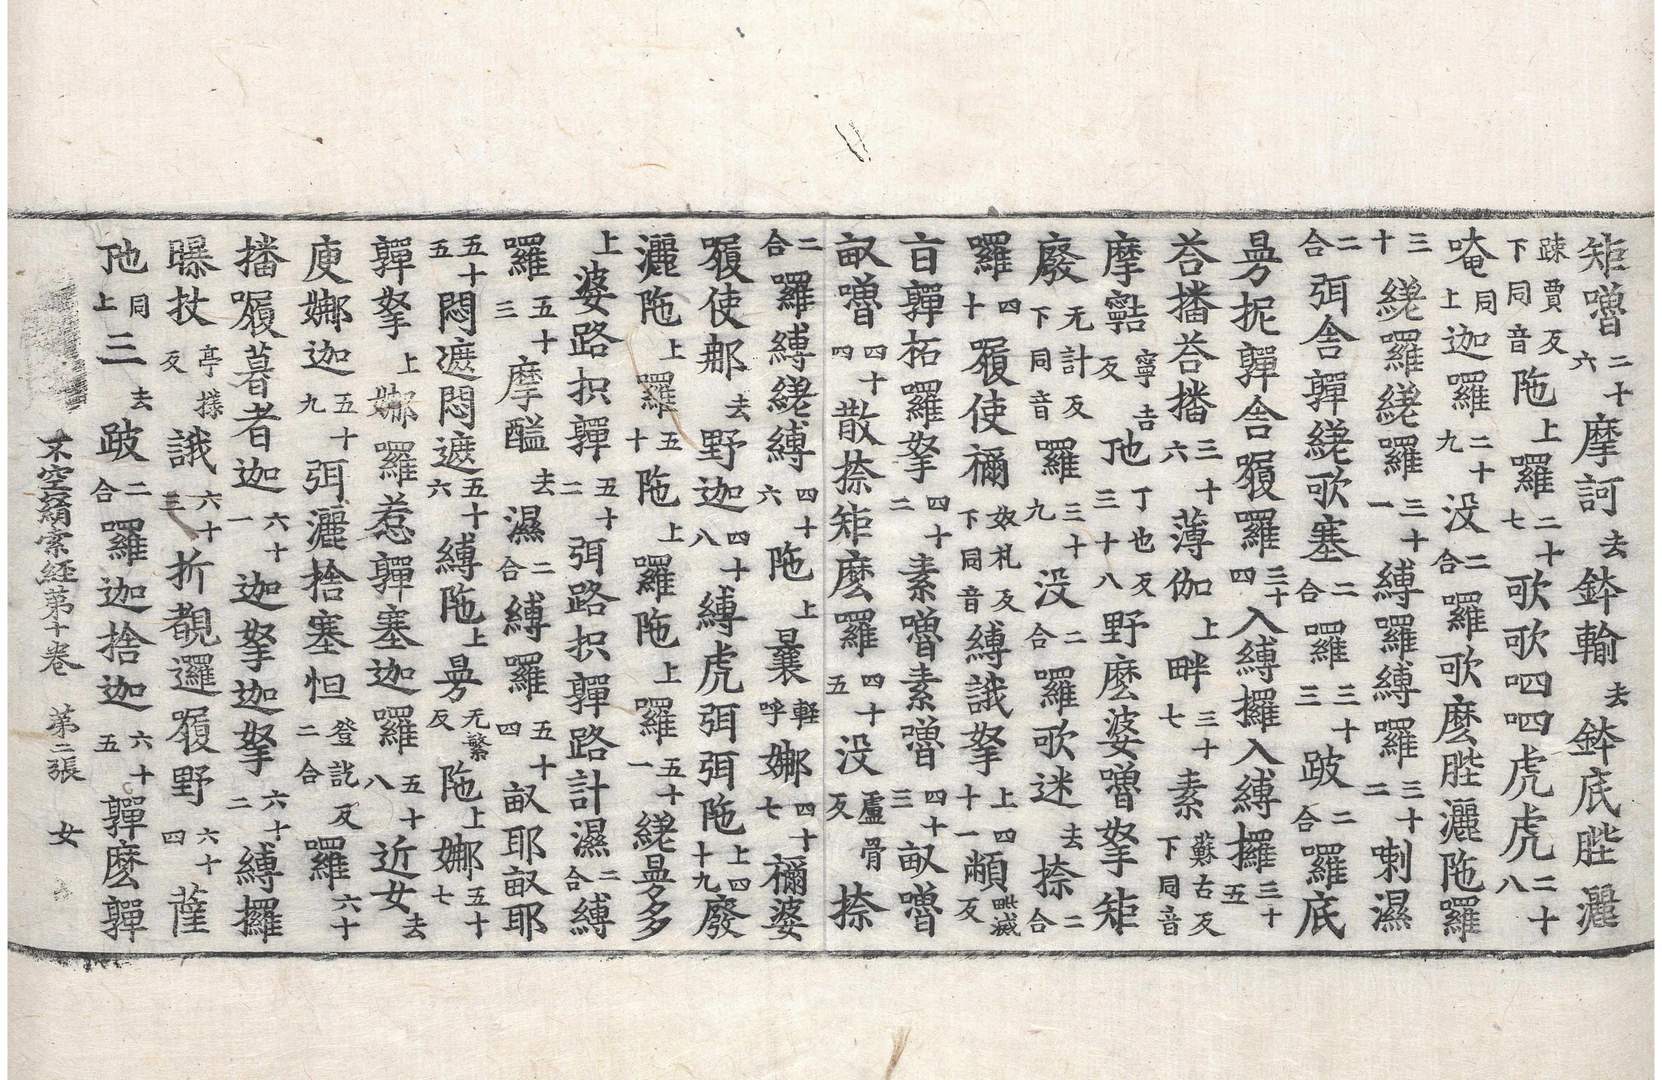 矩嚕二十六摩訶去鉢輸去鉢底陛灑
疎賈反下同音陁上羅二十七歌歌呬呬虎虎二十八
唵同上迦羅二十九没二合囉歌麼陛灑陁羅
三十繞羅繞羅三十一縛囉縛囉三十二喇濕
二合弭舍嚲繞歌塞二合囉三十三跛二合囉底
曼抳嚲舍履羅三十四入縛攞入縛攞三十五
荅播荅播三十六薄伽上畔三十七素蘇古反下同音
摩㗌寧吉反虵丁也反三十八野麼婆嚕拏矩
廢无計反下同音羅三十九没二合囉歌迷去捺二合
囉四十履使禰奴礼反下同音縛誐拏上四十一㡀毗滅反
亘嚲柘羅拏四十二素嚕素嚕四十三畝嚕
畝嚕四十四散捺矩麼羅四十五没盧骨反捺
二合囉縛繞縛四十六陁上曩輕呼娜四十七禰婆
履使那去野迦四十八縛虎弭弭陁上四十九廢
灑陁上羅五十陁上囉陁上囉五十一繞曼多
上婆路抧嚲五十二弭路抧嚲路計濕二合縛
羅五十三摩醯去濕二合縛羅五十四畝耶畝耶
五十五悶遮悶遮五十六縛陁上曼无繁反陁上娜五十七
嚲拏上娜羅惹嚲塞迦囉五十八近女去
庾娜迦五十九弭灑捨塞怛登訖反二合羅六十
播履暮者迦六十一迦拏迦拏六十二縛攞
曝扙亭樣反誐六十三折覩邏履野六十四薩
虵同上三去跛二合囉迦捨迦六十五嚲麼嚲
不空羂索經第十卷　第二張　女